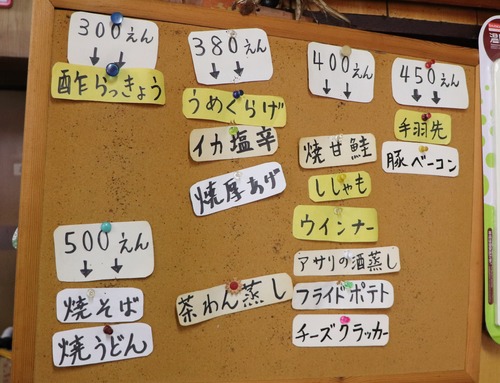 300えん
↓ ↓
酢らっきょう
380えん
↓ ↓
うめくらげ
イカ塩辛
焼厚あげ
茶わん蒸し
400えん
↓ ↓
焼甘鮭
ししゃも
ウインナー
アサリの酒蒸し
フライドポテト
チーズクラッカー
450えん
↓ ↓
手羽先
豚ベーコン
500えん
↓ ↓
焼そば
焼うどん